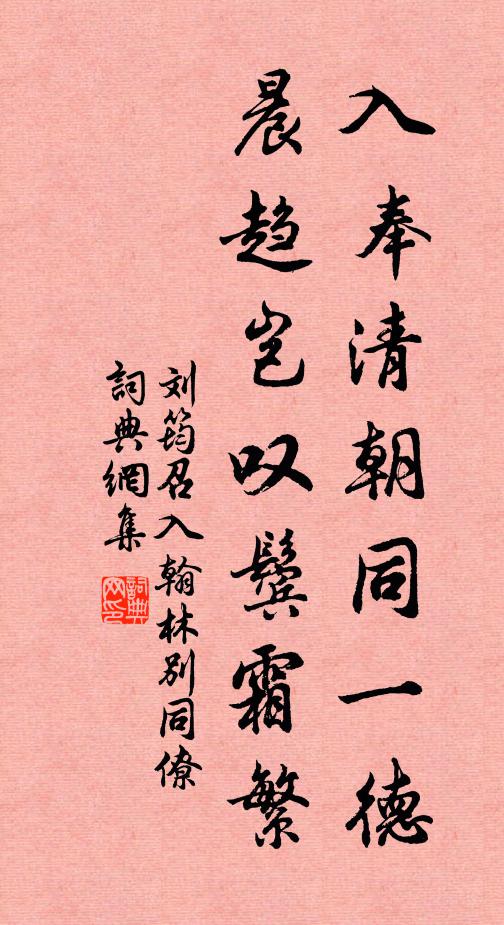 入奉清朝同一德
晨趋岂叹鬓霜繁
刘筠召入翰林别同僚
詞典網集
詞典網印